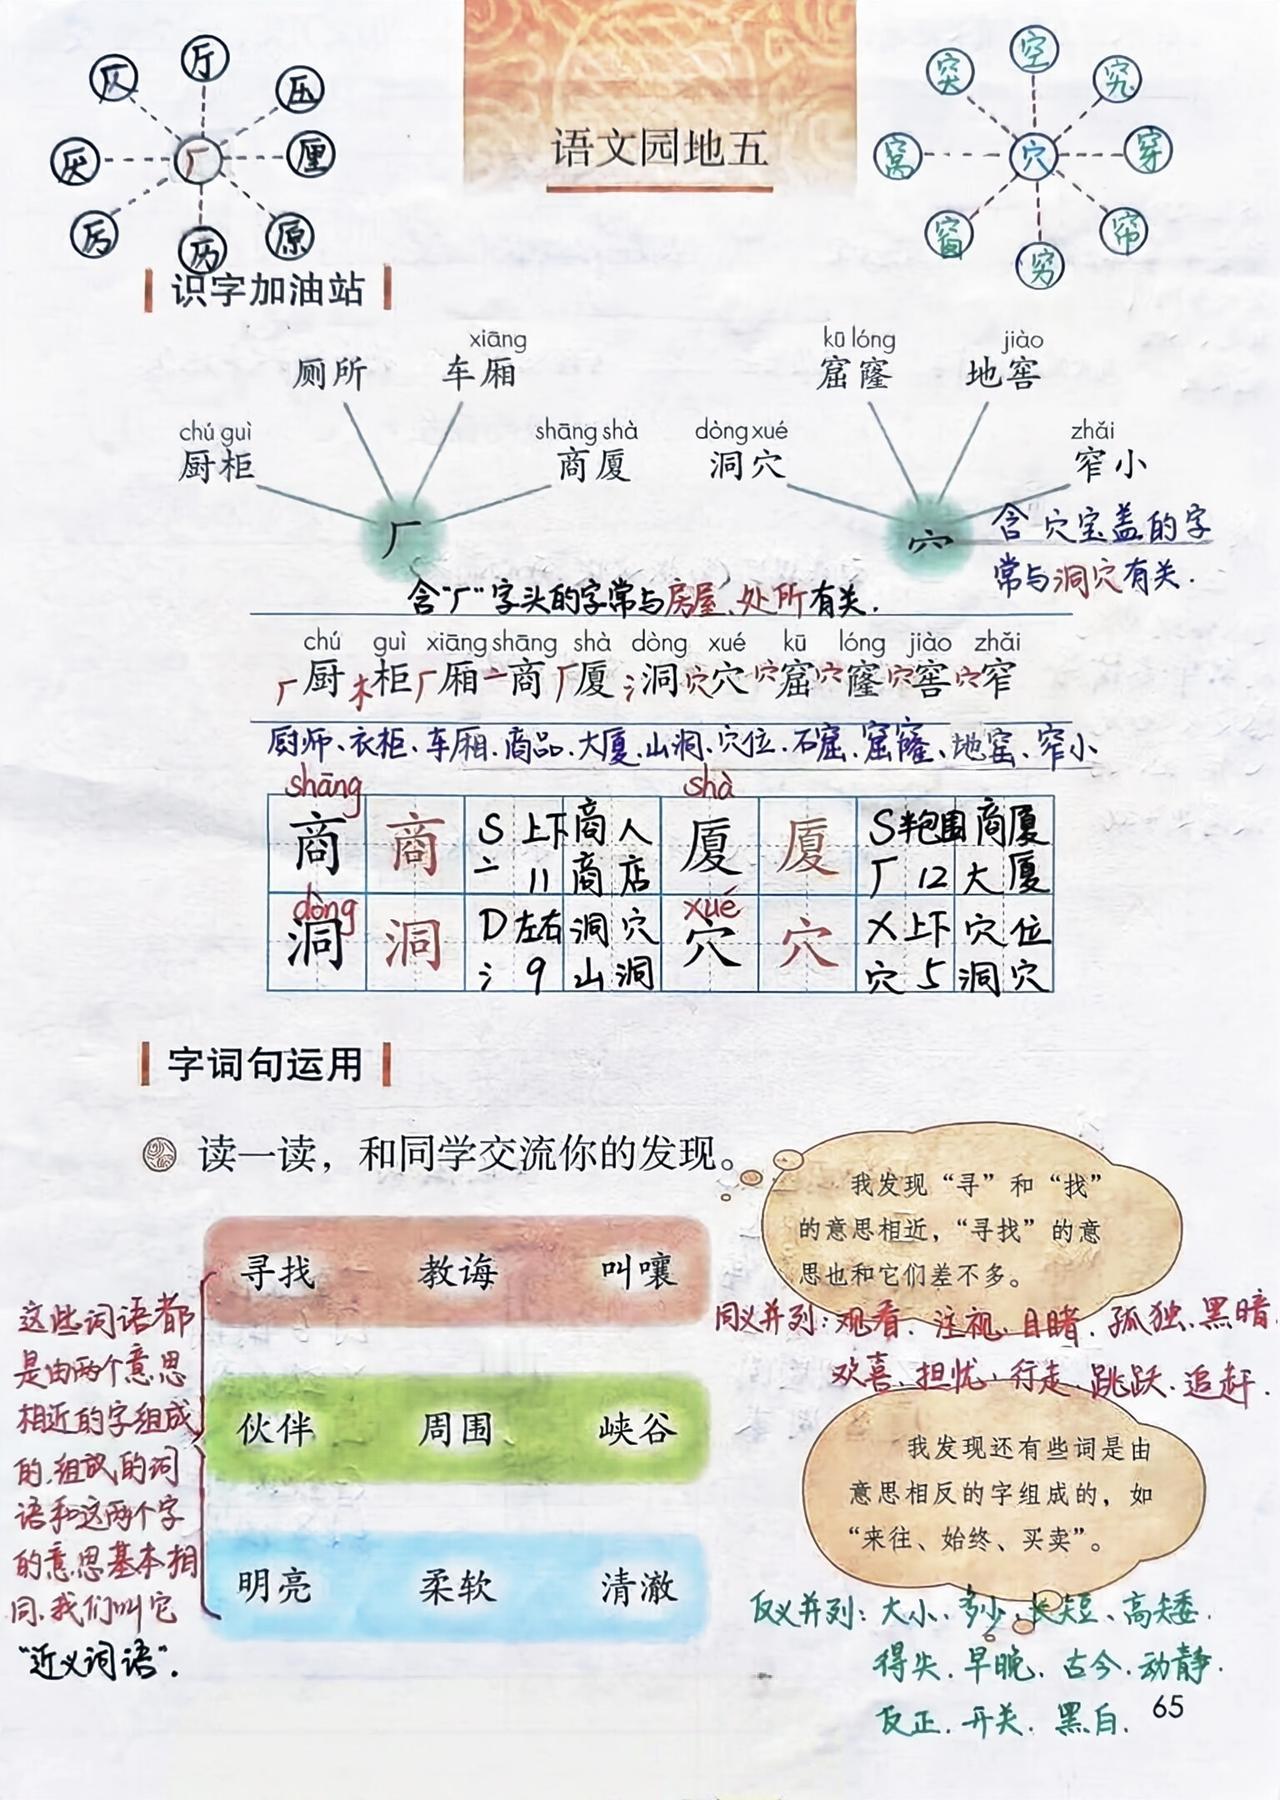 仄 厅 压
厌 厂 厘
厉 厉 原
突 空 究
窝 穴 穿
窗 穷 帘
语文园地五
识字加油站
xiāng
厕所 车厢
kū lóng jiào
窟窿 地窖
chú guì
厨柜
shāng shà
商厦
dòng xué
洞穴
zhǎi
窄小
厂
穴
含穴宝盖的字
常与洞穴有关.
含“厂”字头的字常与房屋、处所有关.
chú guì xiāng shāng shà dòng xué kū lóng jiào zhǎi
厂厨 木柜 厂厢 亠商 厂厦 氵洞 穴穴 穴窟 穴窿 穴窖 穴窄
厨师、衣柜、车厢、商品、大厦、山洞、穴位、石窟、窟窿、地窖、窄小
shāng shà
商 商 S 上下 商人 厦 厦 S 半包围 商厦
亠 11 商店 厂 12 大厦
dòng xué
洞 洞 D 左右 洞穴 穴 穴 X 上下 穴位
氵 9 山洞 穴 5 洞穴
字词句运用
读一读，和同学交流你的发现。
我发现“寻”和“找”
的意思相近，“寻找”的意
思也和它们差不多。
寻找 教诲 叫嚷
伙伴 周围 峡谷
明亮 柔软 清澈
这些词语都
是由两个意思
相近的字组成
的.组成的词
语和这两个字
的意思基本相
同.我们叫它
“近义词语”.
同义并列：观看、注视、目睹、孤独、黑暗.
欢喜、担忧、行走、跳跃、追赶.
我发现还有些词是由
意思相反的字组成的，如
“来往、始终、买卖”。
反义并列：大小、多少、长短、高矮.
得失、早晚、古今、动静.
反正、开关、黑白.
65